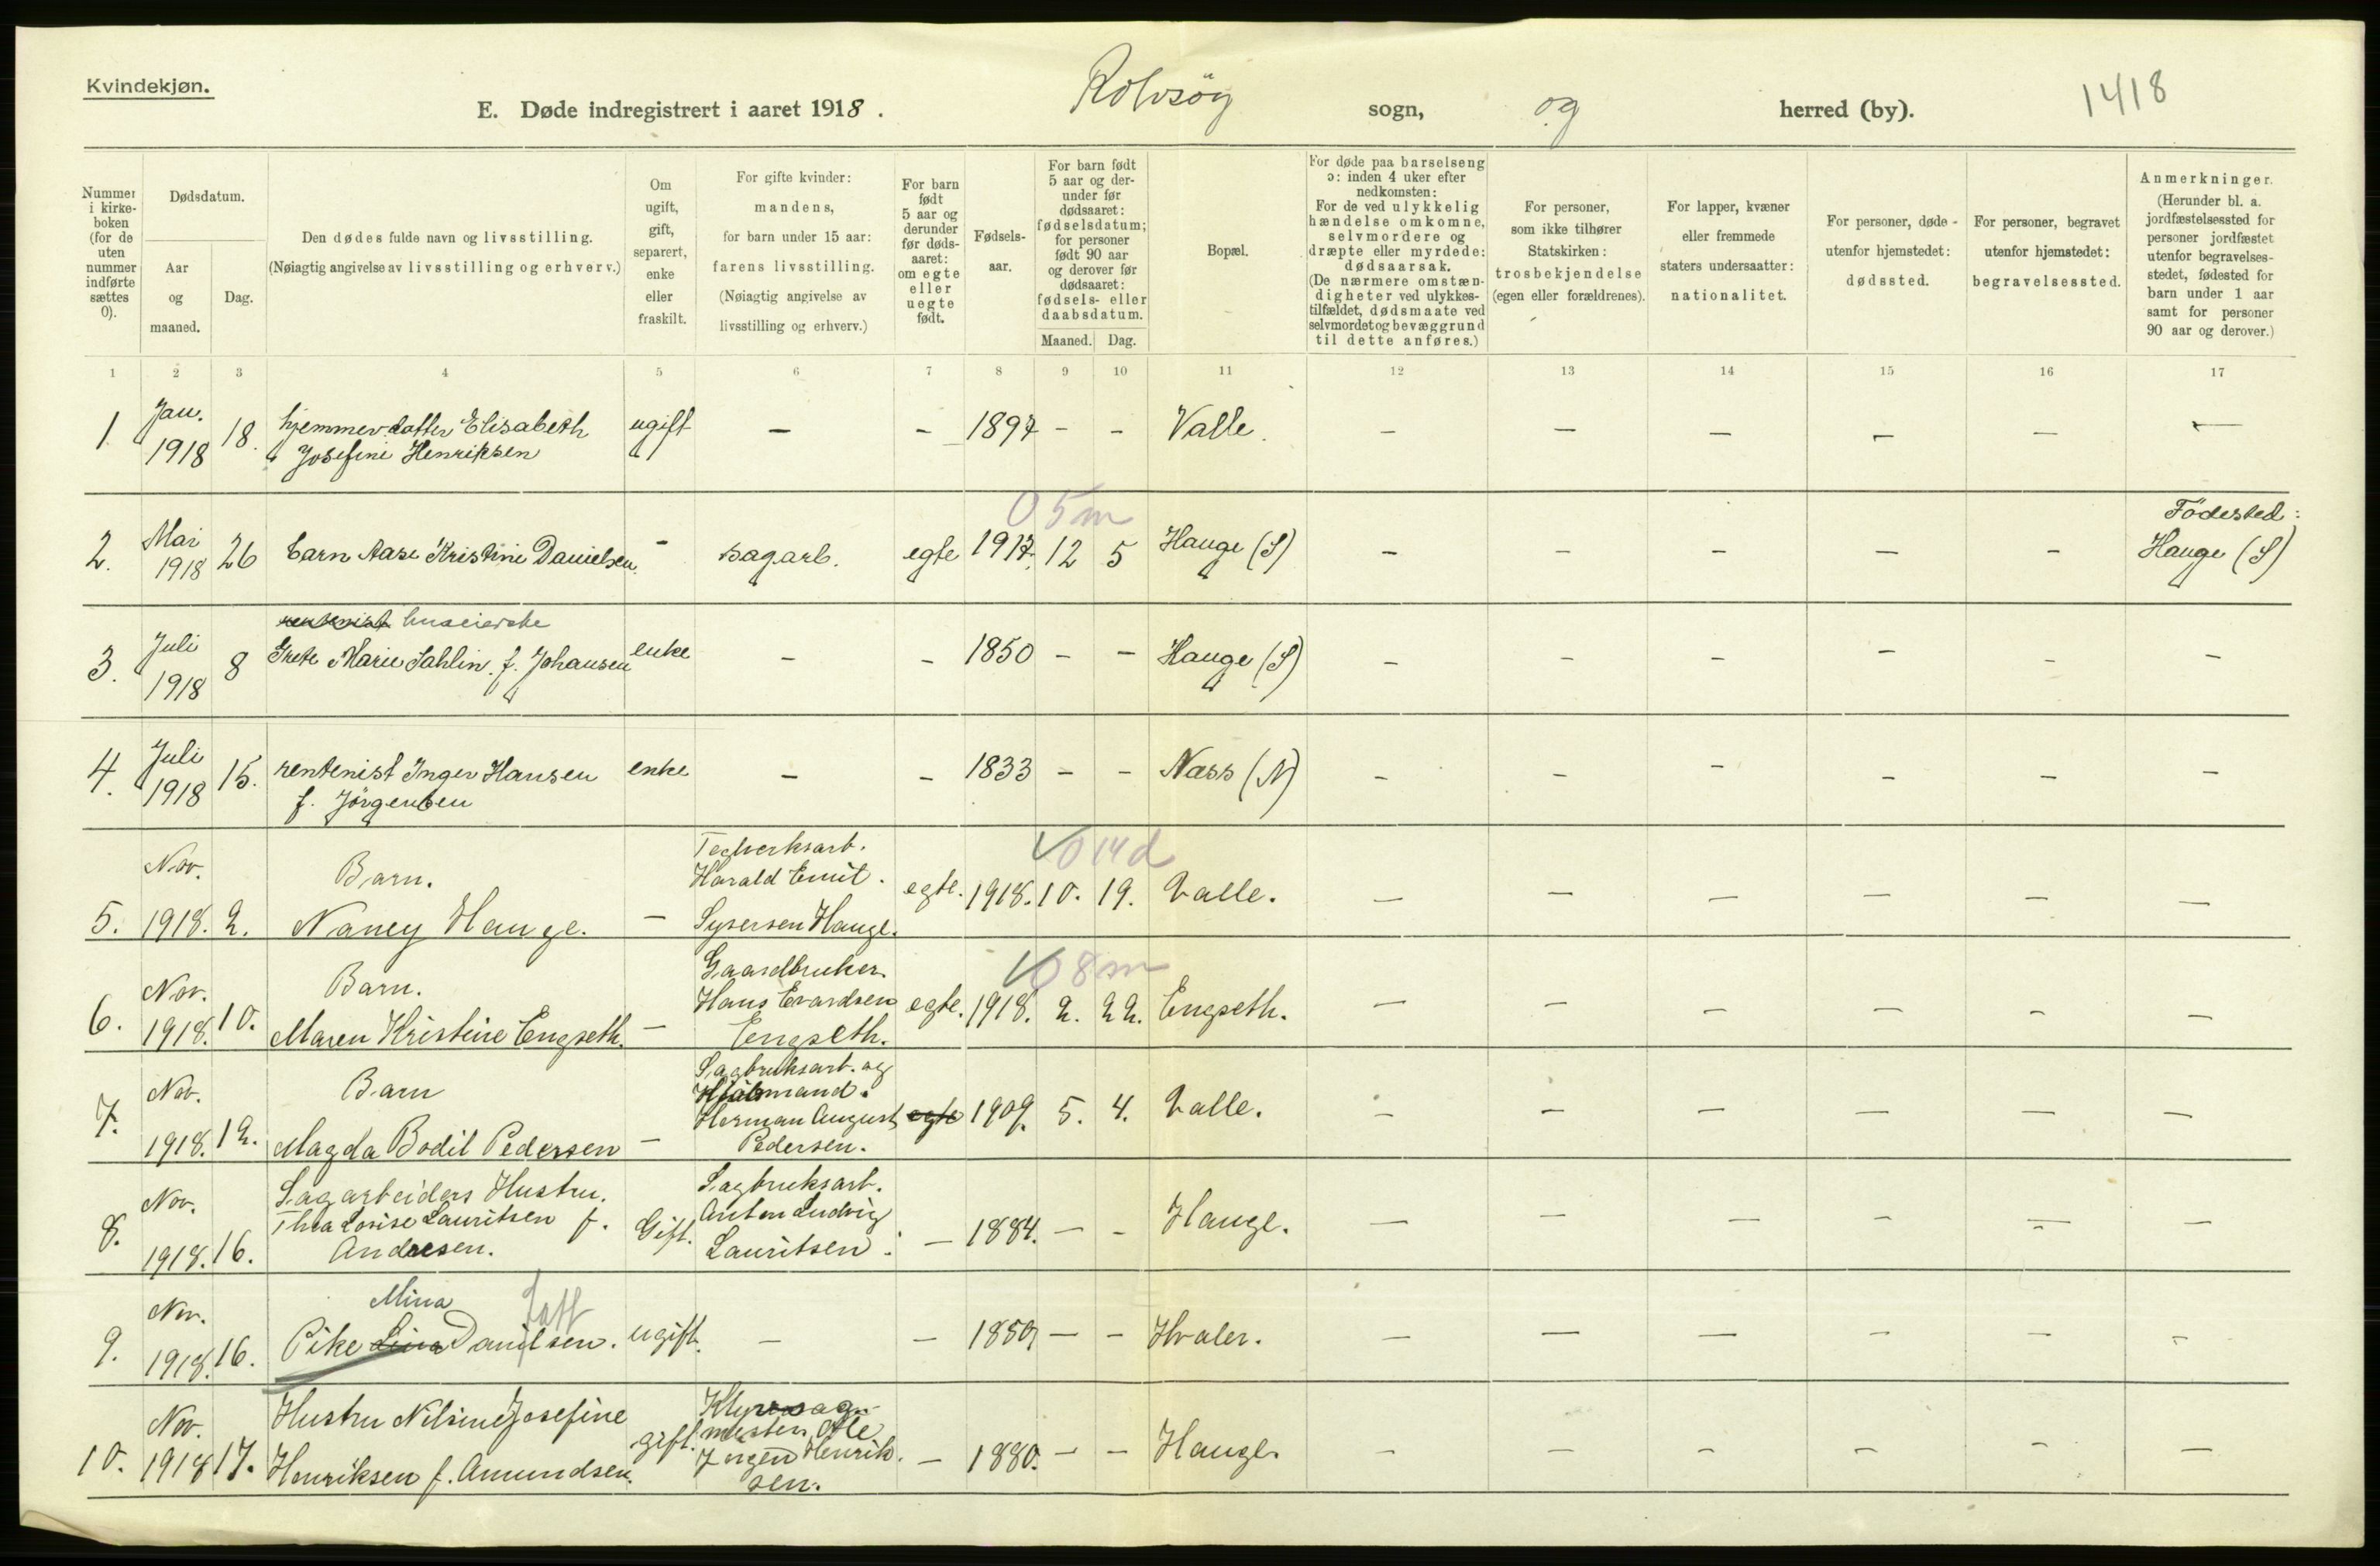 Kvindekjøn.
E. Døde indregistrert i aaret 1918. Rolvsöy sogn, og herred (by). 1418
Nummer i kirke-boken (for de uten nummer indførte sættes 0).
Dødsdatum.
Aar og maaned.
Dag.
Den dødes fulde navn og livsstilling.
(Nøiagtig angivelse av livsstilling og erhverv.)
Om ugift, gift, separert, enke eller fraskilt.
For gifte kvinder: mandens, for barn under 15 aar: farens livsstilling.
(Nøiagtig angivelse av livsstilling og erhverv.)
For barn født 5 aar og derunder før døds-aaret: om egte eller uegte født.
Fødsels-aar.
For barn født 5 aar og der-under før dødsaaret: fødselsdatum; for personer født 90 aar og derover før dødsaaret: fødsels- eller daabsdatum.
Maaned. Dag.
Bopæl.
For døde paa barselseng ɔ: inden 4 uker efter nedkomsten:
For de ved ulykkelig hændelse omkomne, selvmordere og dræpte eller myrdede: dødsaarsak.
(De nærmere omstæn-digheter ved ulykkes-tilfældet, dødsmaate ved selvmordet og bevæggrund til dette anføres.)
For personer, som ikke tilhører Statskirken: trosbekjendelse (egen eller forældrenes).
For lapper, kvæner eller fremmede staters undersaatter: nationalitet.
For personer, døde - utenfor hjemstedet: dødssted.
For personer, begravet utenfor hjemstedet: begravelsessted.
Anmerkninger.
(Herunder bl. a. jordfæstelsessted for personer jordfæstet utenfor begravelses-stedet, fødested for barn under 1 aar samt for personer 90 aar og derover.)
1 2 3 4 5 6 7 8 9 10 11 12 13 14 15 16 17
1. Jan. 1918 18. hjemmev. datter Elisabeth Josefine Henriksen ugift – – 1897 – – Valle. – – – – – –
05m
2. Mai 1918 26 barn Aase Kristine Danielsen. – sagarb. egte 1917. 12 5 Hauge (S) – – – – – Födested: Hauge (S)
3. Juli 1918 8 rentenist huseierske Grete Marie Sahlin. f. Johansen enke – – 1850 – – Hauge (S) – – – – – –
4. Juli 1918 15. rentenist Inger Hansen f. Jörgensen enke – – 1833 – – Næss (N) – – – – – –
0 14d
5. Nov. 1918. 2. Barn. Nancy Hauge. – Teglverksarb. Harald Emil. Syversen Hauge. egte. 1918. 10. 19. Valle. – – – – – –
0 8m
6. Nov. 1918. 10. Barn. Maren Kristine Engseth. – Gaardbruker Hans Evardsen Engseth. egte. 1918. 2. 22. Engseth. – – – – – –
7. Nov. 1918. 12. Barn Magda Bodil Pedersen – Sagbruksarb. og Herman August Pedersen. egte 1909. 5. 4. Valle. – – – – – –
8. Nov. 1918. 16. Sagarbeiders Hustru. Thea Lovise Lauritsen f. Andresen. Gift. Sagbruksarb. Anton Ludvig Lauritsen. – 1884. – – Hauge. – – – – – –
9. Nov. 1918. 16. Pike Lina Mina Danilsen. ugift. – – 1859 – – Hvaler. – – – – – –
10. Nov. 1918 17. Hustru Nilsine Josefine Henriksen f. Amundsen. gift. mester Ole Jörgen Henrik-sen. – 1880. – – Hauge. – – – – – –